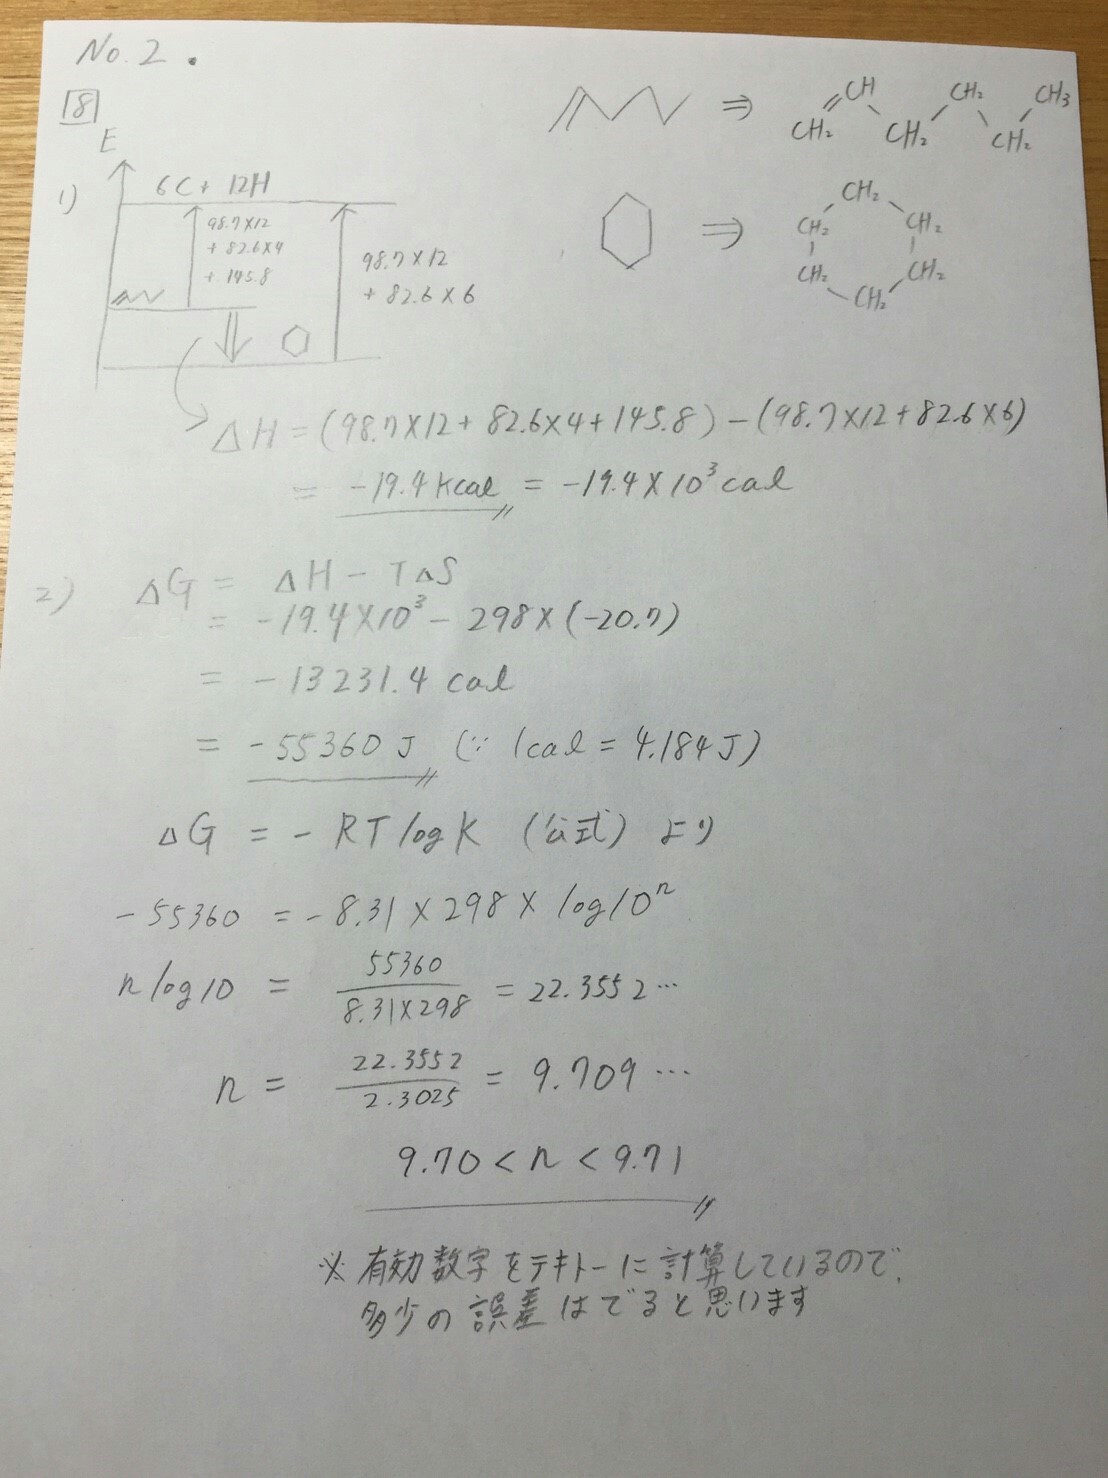 No. 2.
8
E
1)
6C + 12H
98.7×12
+ 82.6×4
+ 145.8
98.7×12
+ 82.6×6
⇒ CH₂ CH CH₂ CH₂ CH₂ CH₃
⇒ CH₂ CH₂ CH₂ CH₂ CH₂ CH₂
ΔH = (98.7×12 + 82.6×4 + 145.8) − (98.7×12 + 82.6×6)
= −19.4 kcal = −19.4×10³ cal
2) ΔG = ΔH − TΔS
= −19.4×10³ − 298×(−20.7)
= −13231.4 cal
= −55360 J (∵ 1cal = 4.184J)
ΔG = − RT log K (公式) より
−55360 = −8.31 × 298 × log10ⁿ
n log10 = 55360 / 8.31×298 = 22.3552…
n = 22.3552 / 2.3025 = 9.709…
9.70 < n < 9.71
※ 有効数字をテキトーに計算しているので、
多少の誤差はでると思います